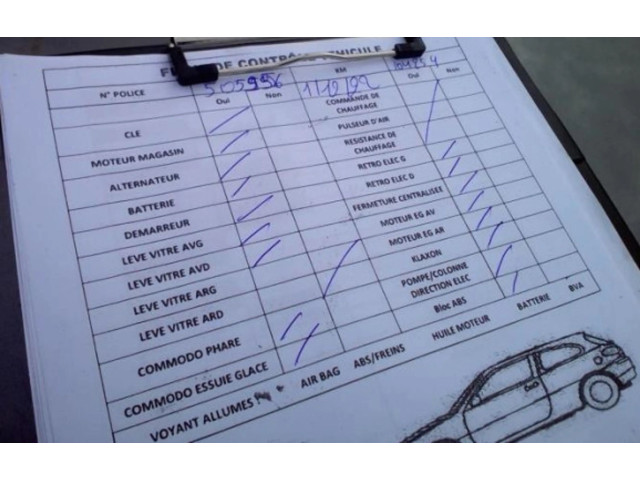 DE CONTRÔLE VEHICULE
N° POLICE 505956 KM
Oui Non 1/12/92 Oui Non
CLE COMMANDE DE CHAUFFAGE
MOTEUR MAGASIN PULSEUR D'AIR
ALTERNATEUR RESISTANCE DE CHAUFFAGE
BATTERIE RETRO ELEC G
DEMARREUR RETRO ELEC D
LEVE VITRE AVG FERMETURE CENTRALISEE
LEVE VITRE AVD MOTEUR EG AV
LEVE VITRE ARG MOTEUR EG AR
LEVE VITRE ARD KLAXON
COMMODO PHARE POMPE/COLONNE DIRECTION ELEC
COMMODO ESSUIE GLACE Bloc ABS
VOYANT ALLUMES AIR BAG ABS/FREINS HUILE MOTEUR BATTERIE BVA